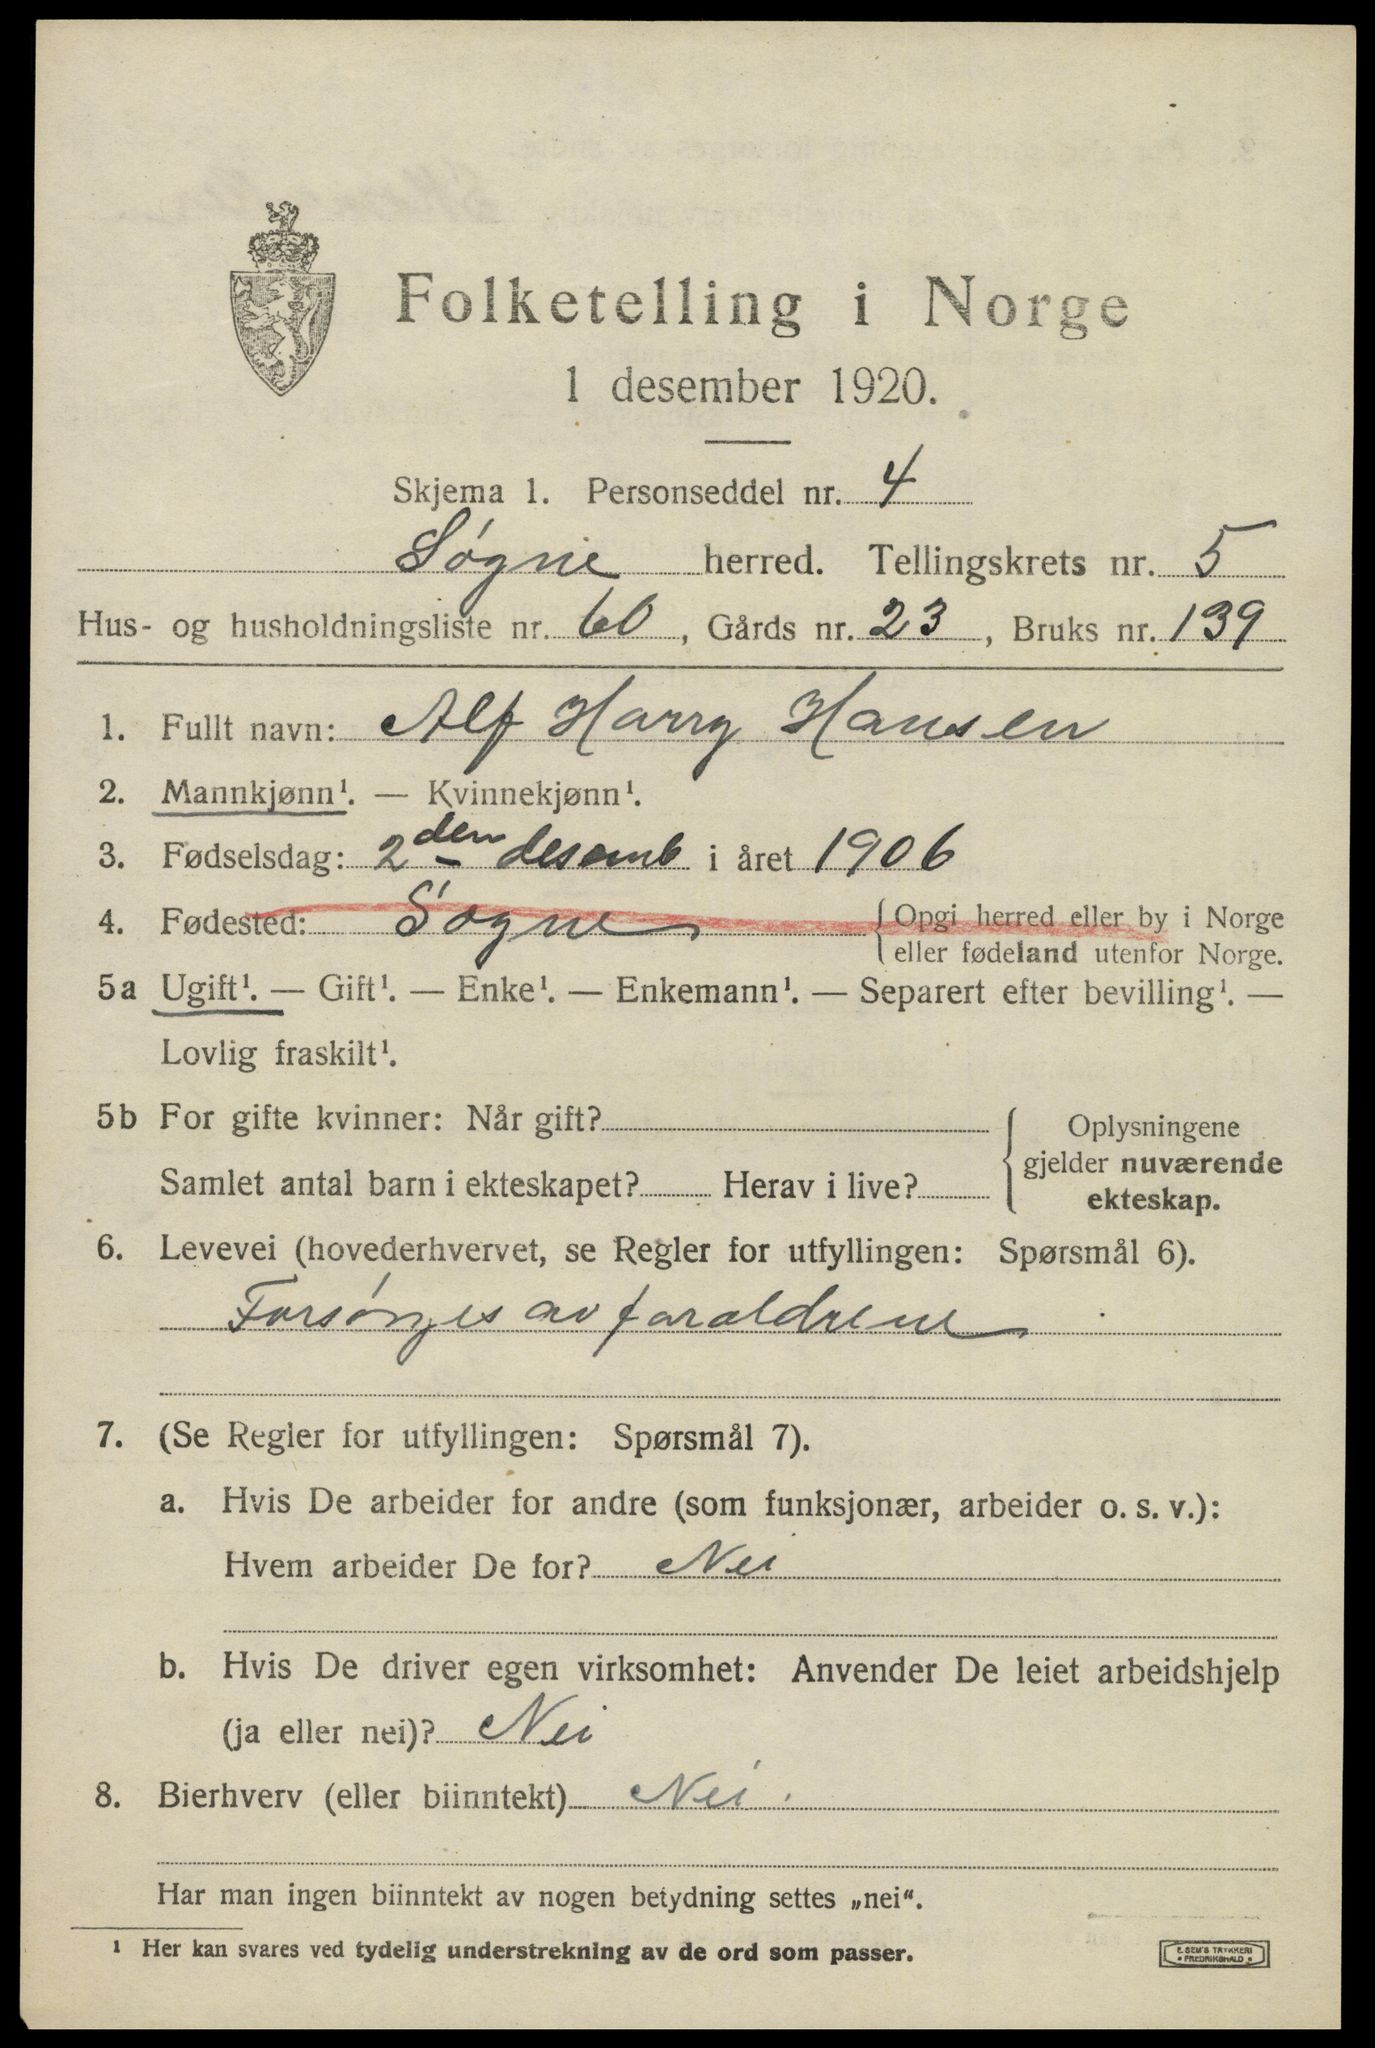 Folketelling i Norge
1 desember 1920.
Skjema 1. Personseddel nr. 4
Søgne herred. Tellingskrets nr. 5
Hus- og husholdningsliste nr. 60, Gårds nr. 23, Bruks nr. 139
1. Fullt navn: Alf Harry Hansen
2. Mannkjønn¹. — Kvinnekjønn¹.
3. Fødselsdag: 2den desemb i året 1906
4. Fødested: Søgne {Opgi herred eller by i Norge
eller fødeland utenfor Norge.
5a Ugift¹. — Gift¹. — Enke¹. — Enkemann¹. — Separert efter bevilling¹. —
Lovlig fraskilt¹.
5b For gifte kvinner: Når gift?
Samlet antal barn i ekteskapet? Herav i live?
Oplysningene
gjelder nuværende
ekteskap.
6. Levevei (hovederhvervet, se Regler for utfyllingen: Spørsmål 6).
Forsørges av foraldrene
7. (Se Regler for utfyllingen: Spørsmål 7).
a. Hvis De arbeider for andre (som funksjonær, arbeider o. s. v.):
Hvem arbeider De for? Nei
b. Hvis De driver egen virksomhet: Anvender De leiet arbeidshjelp
(ja eller nei)? Nei
8. Bierhverv (eller biinntekt) Nei.
Har man ingen biinntekt av nogen betydning settes „nei“.
¹ Her kan svares ved tydelig understrekning av de ord som passer.
E. SEM'S TRYKKERI
FREDRIKSHALD